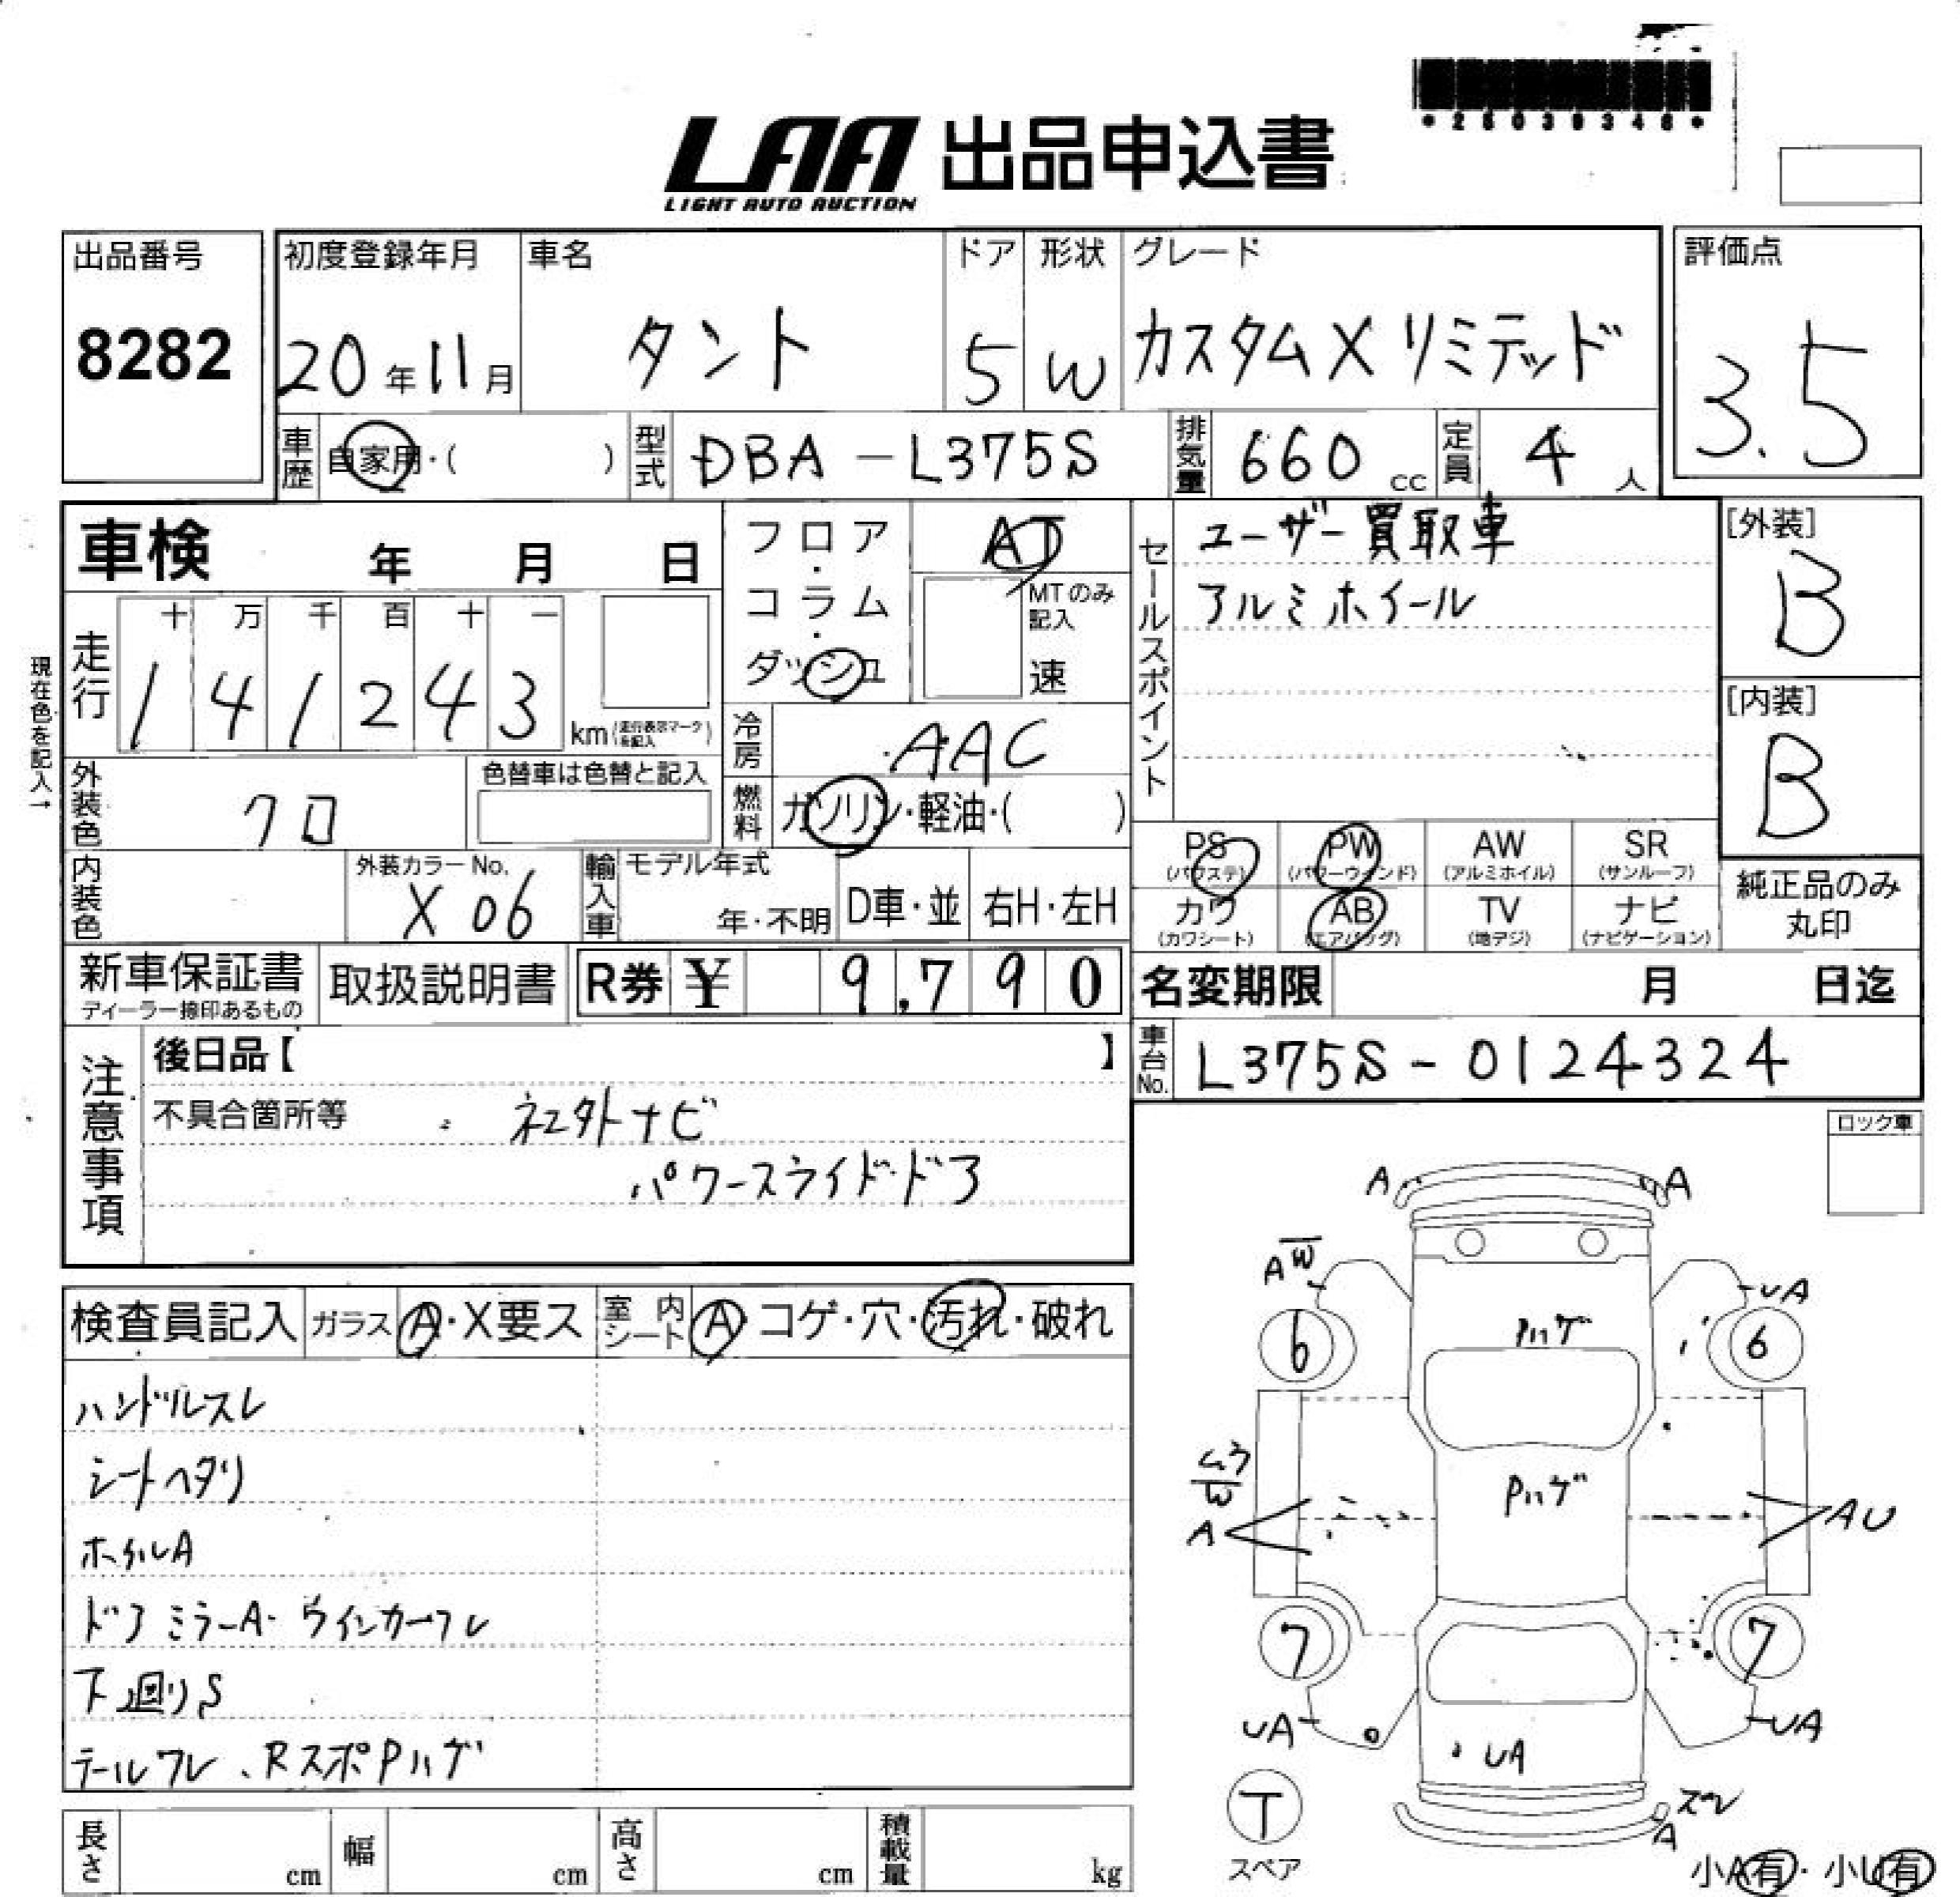 LAA 出品申込書
LIGHT AUTO AUCTION
出品番号
8282
初度登録年月
20年11月
車名
タント
ドア
5
形状
W
グレード
カスタムX リミテッド
評価点
3.5
車歴
自家用・( )
型式
DBA-L375S
排気量
660 cc
定員
4 人
車検 年 月 日
走行
十 万 千 百 十 一
1 4 1 2 4 3
km
現在色を記入→
外装色
クロ
色替車は色替と記入
内装色
外装カラーNo.
X06
フロア・コラム・ダッシュ
AT
MTのみ記入
速
冷房
AAC
燃料
ガソリン・軽油・( )
輸入車
モデル年式
年・不明
D車・並
右H・左H
セールスポイント
ユーザー買取車
アルミホイール
[外装]
B
[内装]
B
PS (パワステ)
PW (パワーウィンド)
AW (アルミホイル)
SR (サンルーフ)
カワ (カワシート)
AB (エアバッグ)
TV (地デジ)
ナビ (ナビゲーション)
純正品のみ
丸印
新車保証書
ディーラー捺印あるもの
取扱説明書
R券 ¥ 9,790
名変期限 月 日迄
車台No.
L375S-0124324
注意事項
後日品【 】
不具合箇所等
ネエタトナビ
パワースライドドア
ロック車
検査員記入
ガラス A・X要ス
室内シート A・コゲ・穴・汚れ・破れ
ハンドルスレ
シートヘタリ
ホイルA
ドアミラーA・ウインカーワレ
下廻りS
テールワレ、RスポPハゲ
A
A
AW
UA
6
Pハゲ
6
W
Pハゲ
A
AU
7
7
UA
UA
UA
T
スペア
A
小A有・小U有
長さ cm
幅 cm
高さ cm
積載量 kg